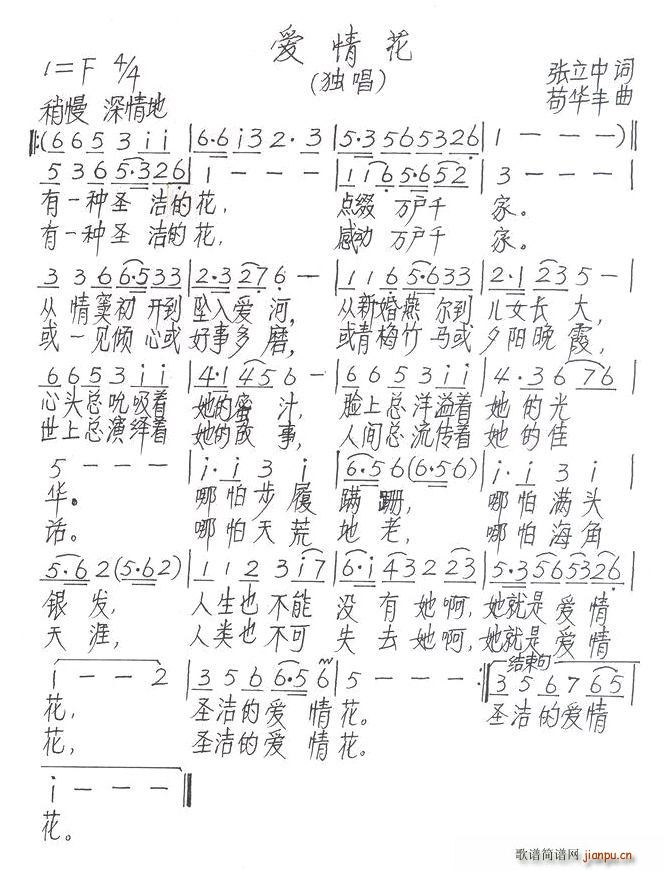 爱情花
(独唱)
1=F 4/4
稍慢 深情地
张立中 词
苟华丰 曲
(6 6 5 3 i i | 6·6 i 3 2·3 | 5·3 5 6 5 3 2 6 | 1 - - - )
5 3 6 5·3 2 6 | 1 - - - | 1 1 6 5·6 5 2 | 3 - - - |
有一种圣 洁的花, 点缀 万户千 家。
有一种圣 洁的花, 感动 万户千 家。
3 3 6 6·5 3 3 | 2·3 2 7 6 - | 1 1 6 5·6 3 3 | 2·1 2 3 5 - |
从 情窦初 开到 坠入爱 河, 从新婚燕 尔到 儿女长 大,
或 一见倾 心或 好事多 磨, 或青梅竹 马或 夕阳晚 霞,
6 6 5 3 i i | 4·1 4 5 6 - | 6 6 5 3 i i | 4·3 6 7 6 |
心头总吮吸着 她的蜜 汁, 脸上总洋溢着 她 的 光
世上总演绎着 她的故 事, 人间总流传着 她 的 佳
5 - - - | i·i 3 i | 6·5 6 (6·5 6) | i·i 3 i |
华。 哪怕步履 蹒 跚, 哪怕满头
话。 哪怕天荒 地 老, 哪怕海角
5·6 2 (5·6 2) | 1 1 2 3 i 7 | 6·i 4 3 2 2 3 | 5·3 5 6 5 3 2 6 |
银 发, 人生也 不能 没 有 她啊, 她就是 爱 情
天 涯, 人类也 不可 失 去 她啊, 她就是 爱 情
结束句
i - - 2 | 3 5 6 6·5 6 | 5 - - - :‖ 3 5 6 7 6 5 |
花, 圣洁的爱 情花。 圣洁的爱情
花, 圣洁的爱 情花。
i - - - ‖
花。
歌谱简谱网 jianpu.cn